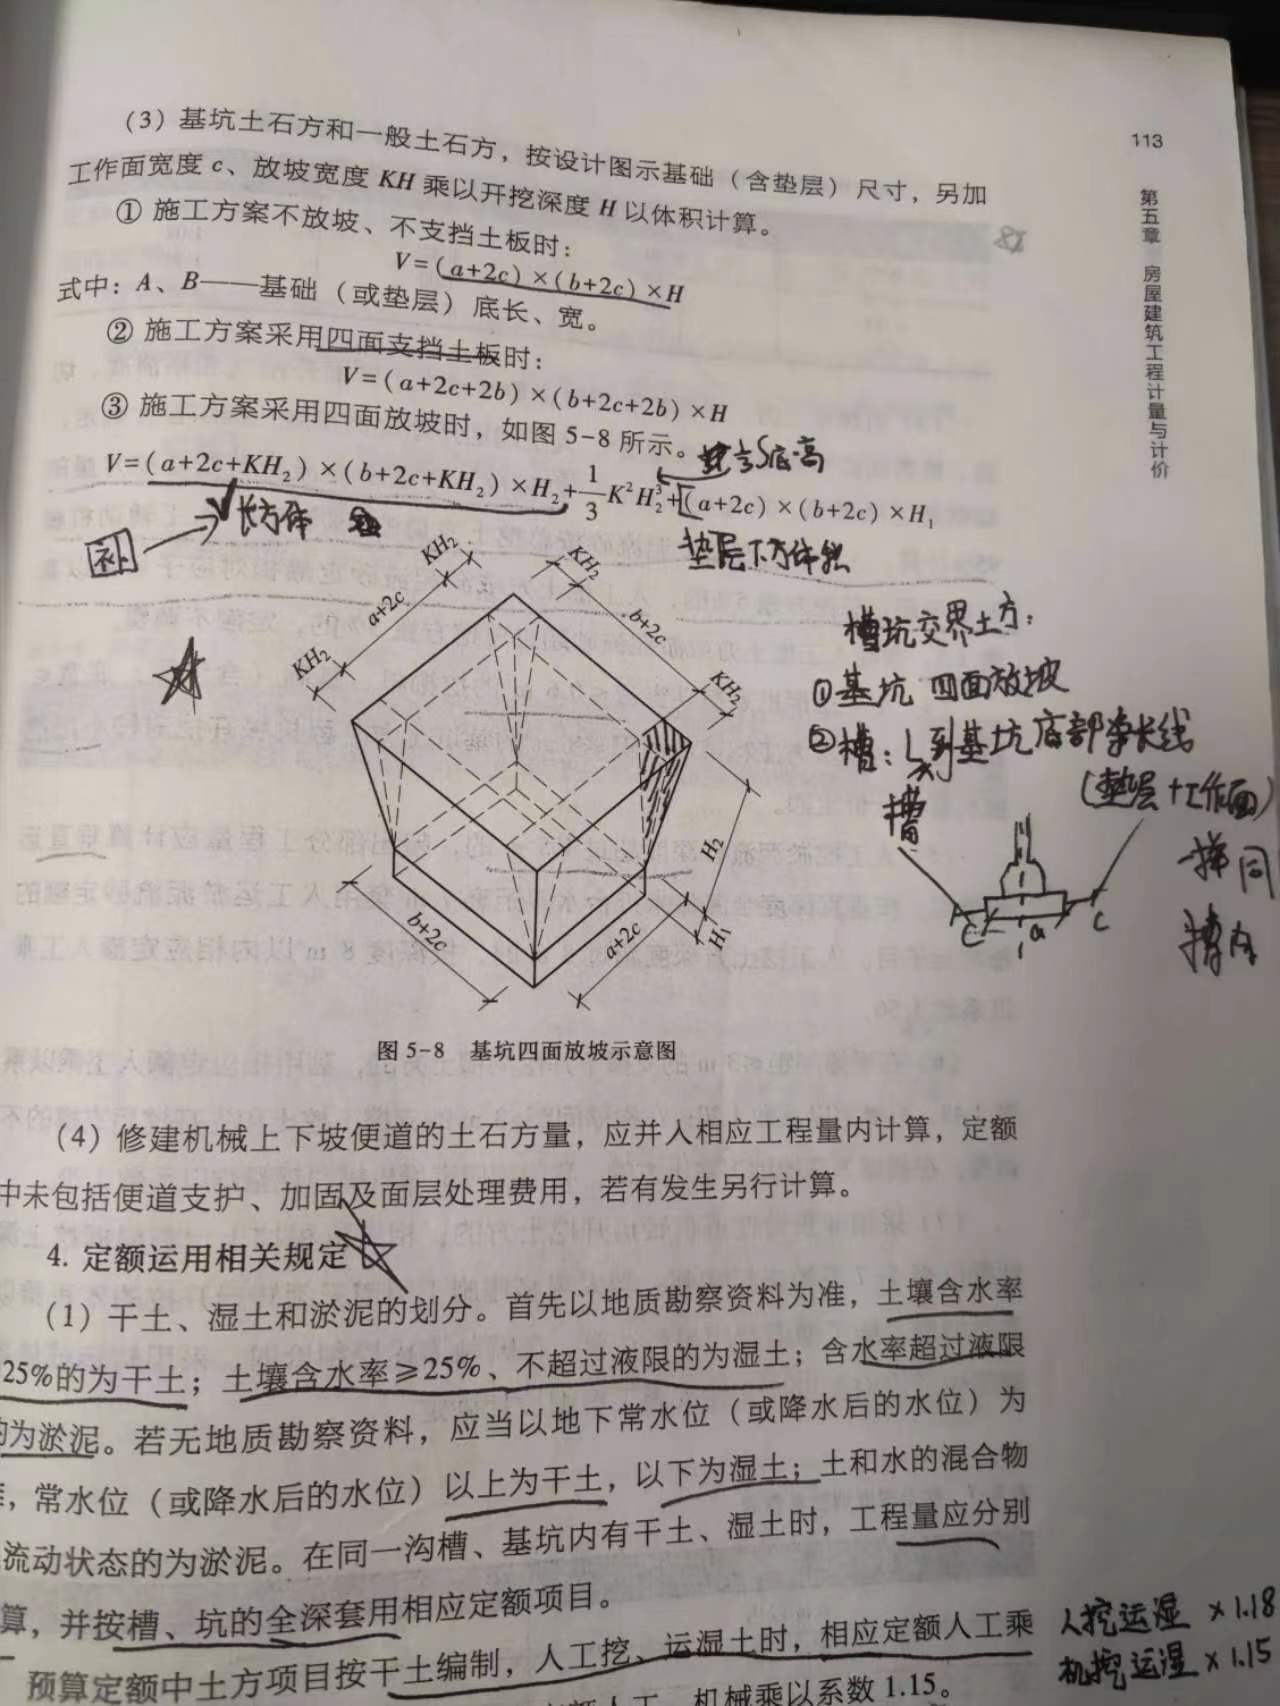 113
第五章 房屋建筑工程计量与计价
（3）基坑土石方和一般土石方，按设计图示基础（含垫层）尺寸，另加
工作面宽度 c、放坡宽度 KH 乘以开挖深度 H 以体积计算。
① 施工方案不放坡、不支挡土板时：
V=(a+2c)×(b+2c)×H
式中：A、B——基础（或垫层）底长、宽。
② 施工方案采用四面支挡土板时：
V=(a+2c+2b)×(b+2c+2b)×H
③ 施工方案采用四面放坡时，如图 5-8 所示。
V=(a+2c+KH₂)×(b+2c+KH₂)×H₂+1/3K²H₂³+[(a+2c)×(b+2c)×H₁
S底·高
补 → 长方体
垫层下方体积
KH₂
KH₂
a+2c
b+2c
KH₂
KH₂
槽坑交界土方：
①基坑 四面放坡
②槽：到基坑底部
(垫层+工作面)
槽
H₂
H₁
b+2c
a+2c
C
a
C
图 5-8 基坑四面放坡示意图
（4）修建机械上下坡便道的土石方量，应并入相应工程量内计算，定额
中未包括便道支护、加固及面层处理费用，若有发生另行计算。
4. 定额运用相关规定
（1）干土、湿土和淤泥的划分。首先以地质勘察资料为准，土壤含水率
25%的为干土；土壤含水率≥25%、不超过液限的为湿土；含水率超过液限
的为淤泥。若无地质勘察资料，应当以地下常水位（或降水后的水位）为
，常水位（或降水后的水位）以上为干土，以下为湿土；土和水的混合物
流动状态的为淤泥。在同一沟槽、基坑内有干土、湿土时，工程量应分别
算，并按槽、坑的全深套用相应定额项目。
预算定额中土方项目按干土编制，人工挖、运湿土时，相应定额人工乘
人挖运湿 ×1.18
机挖运湿 ×1.15
人工、机械乘以系数 1.15。